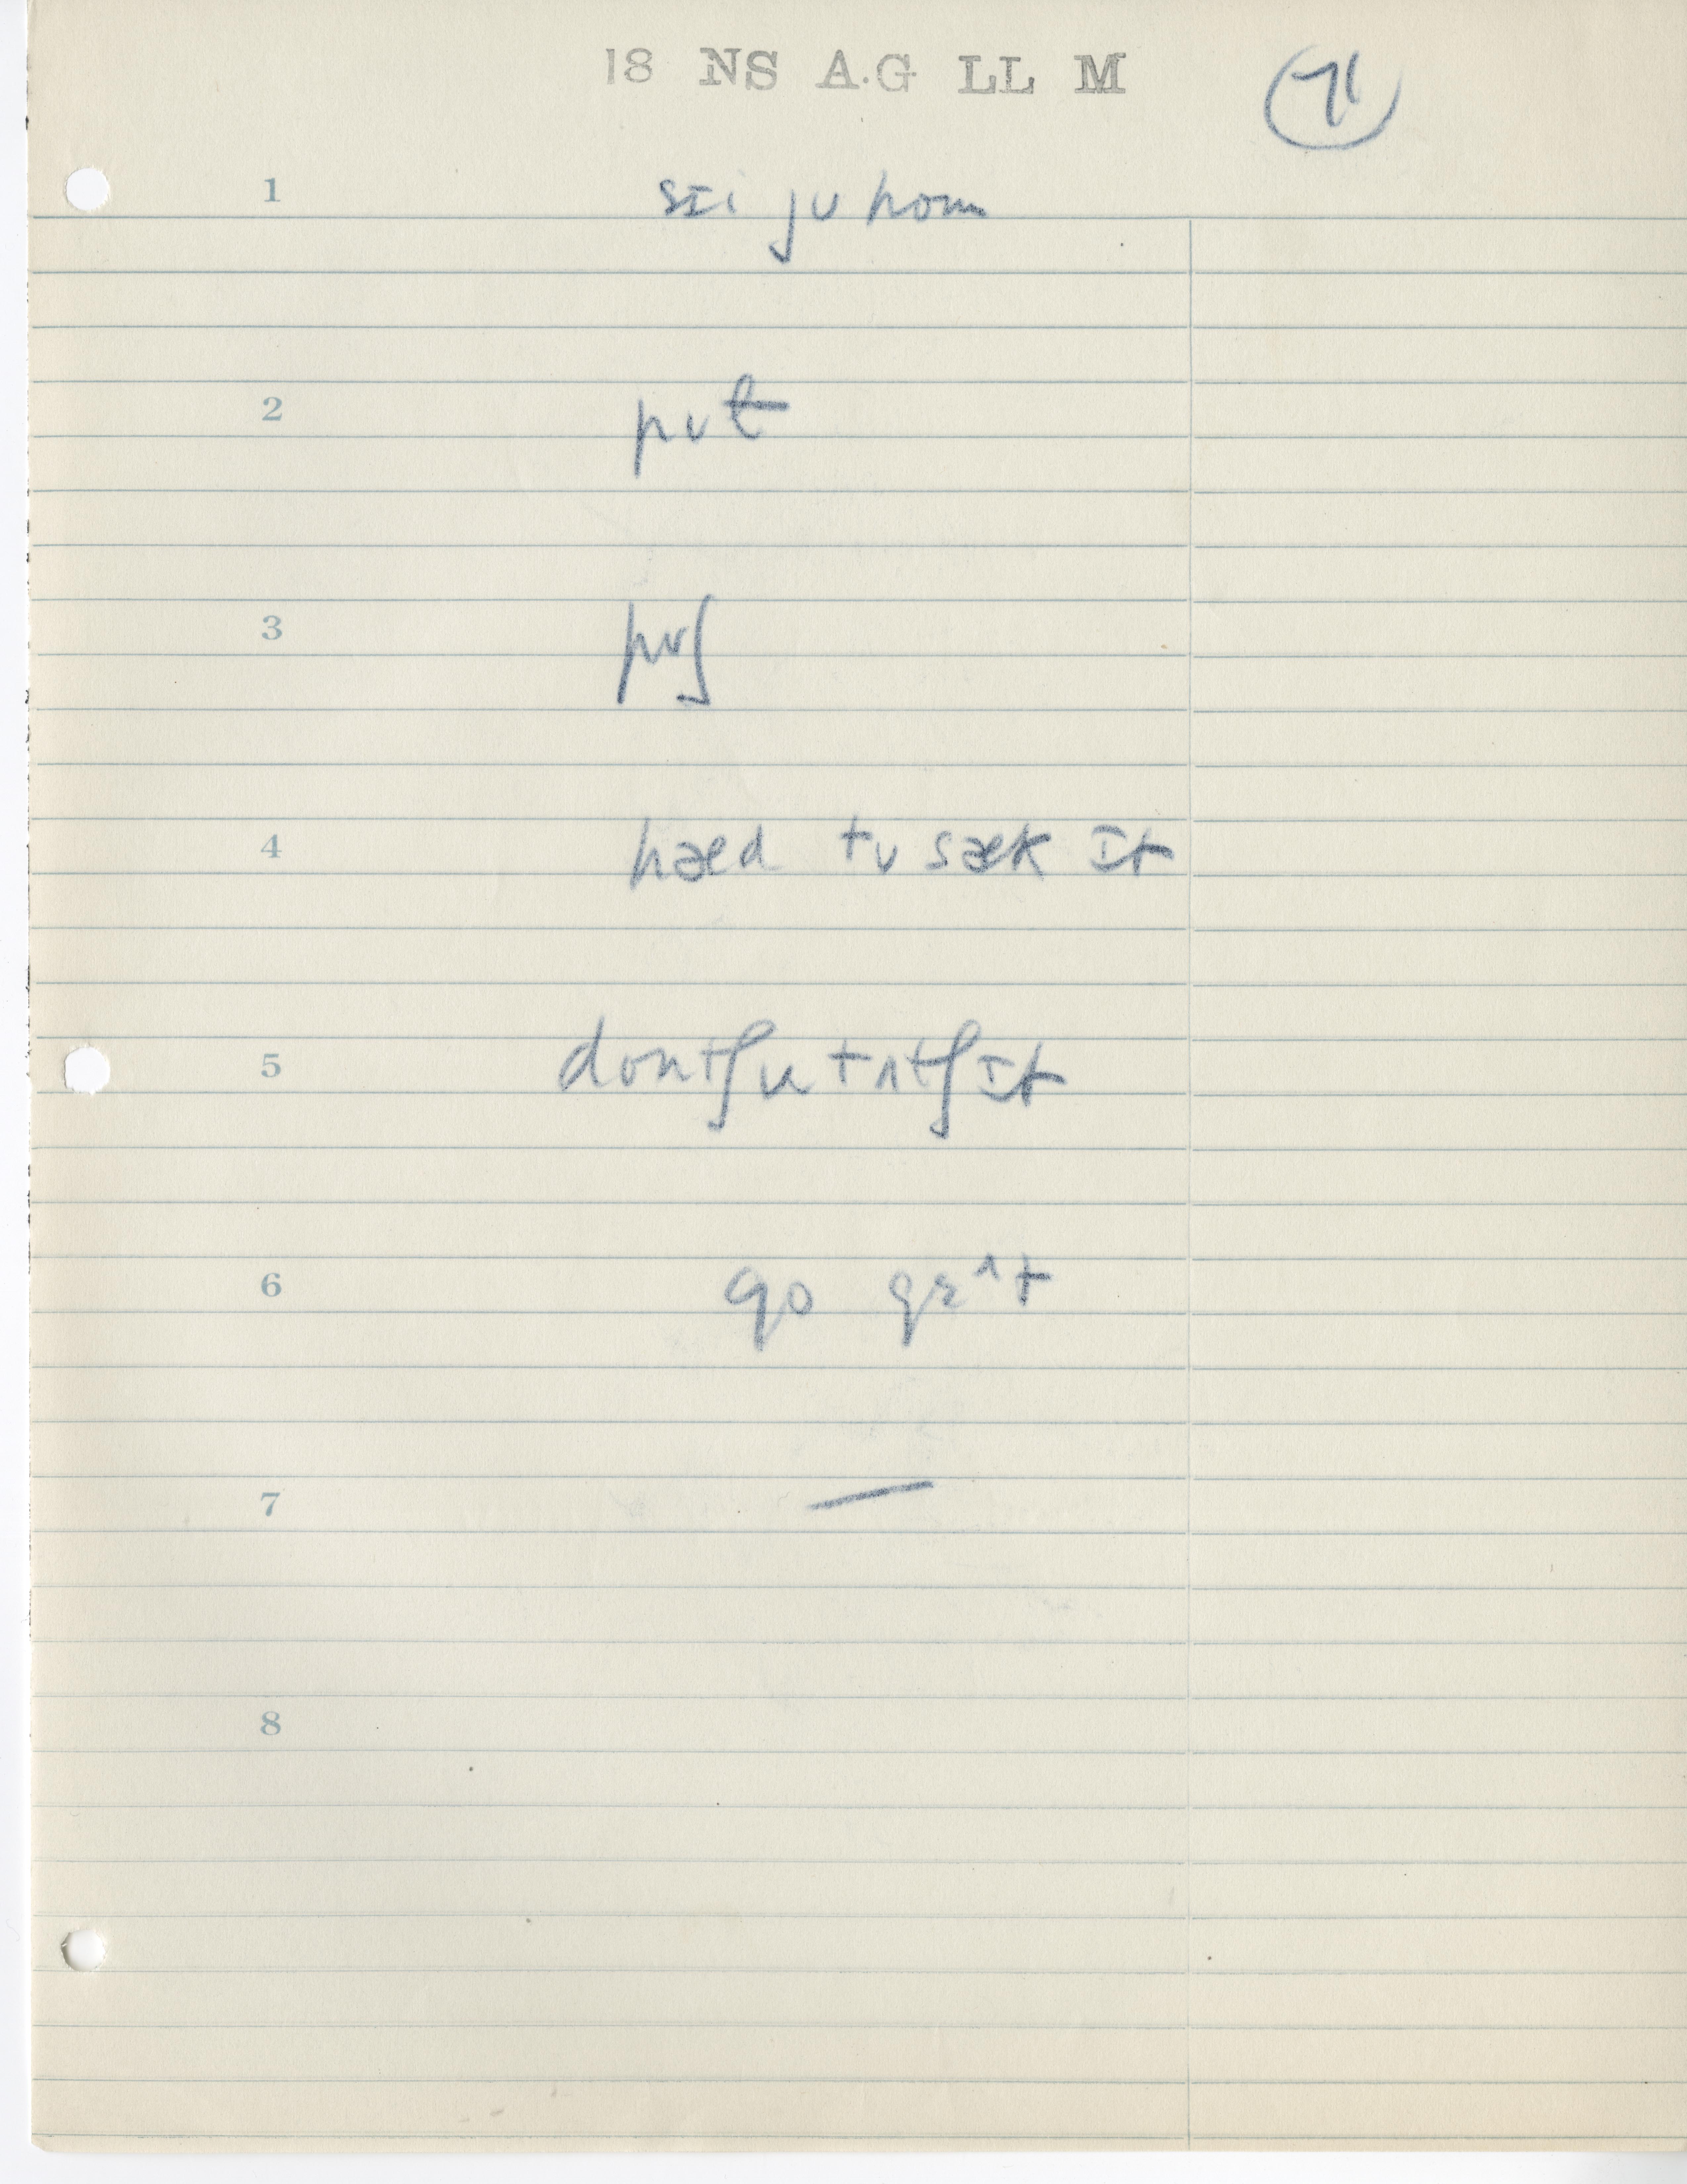 18 NS A.G LL M 71
1 sɪi jʊ hom
2 pʊt
3 pʊʃ
4 hæd tʊ sæk ɪt
5 dontʃu tʌtʃ ɪt
6 go gɛ^t
7 —
8